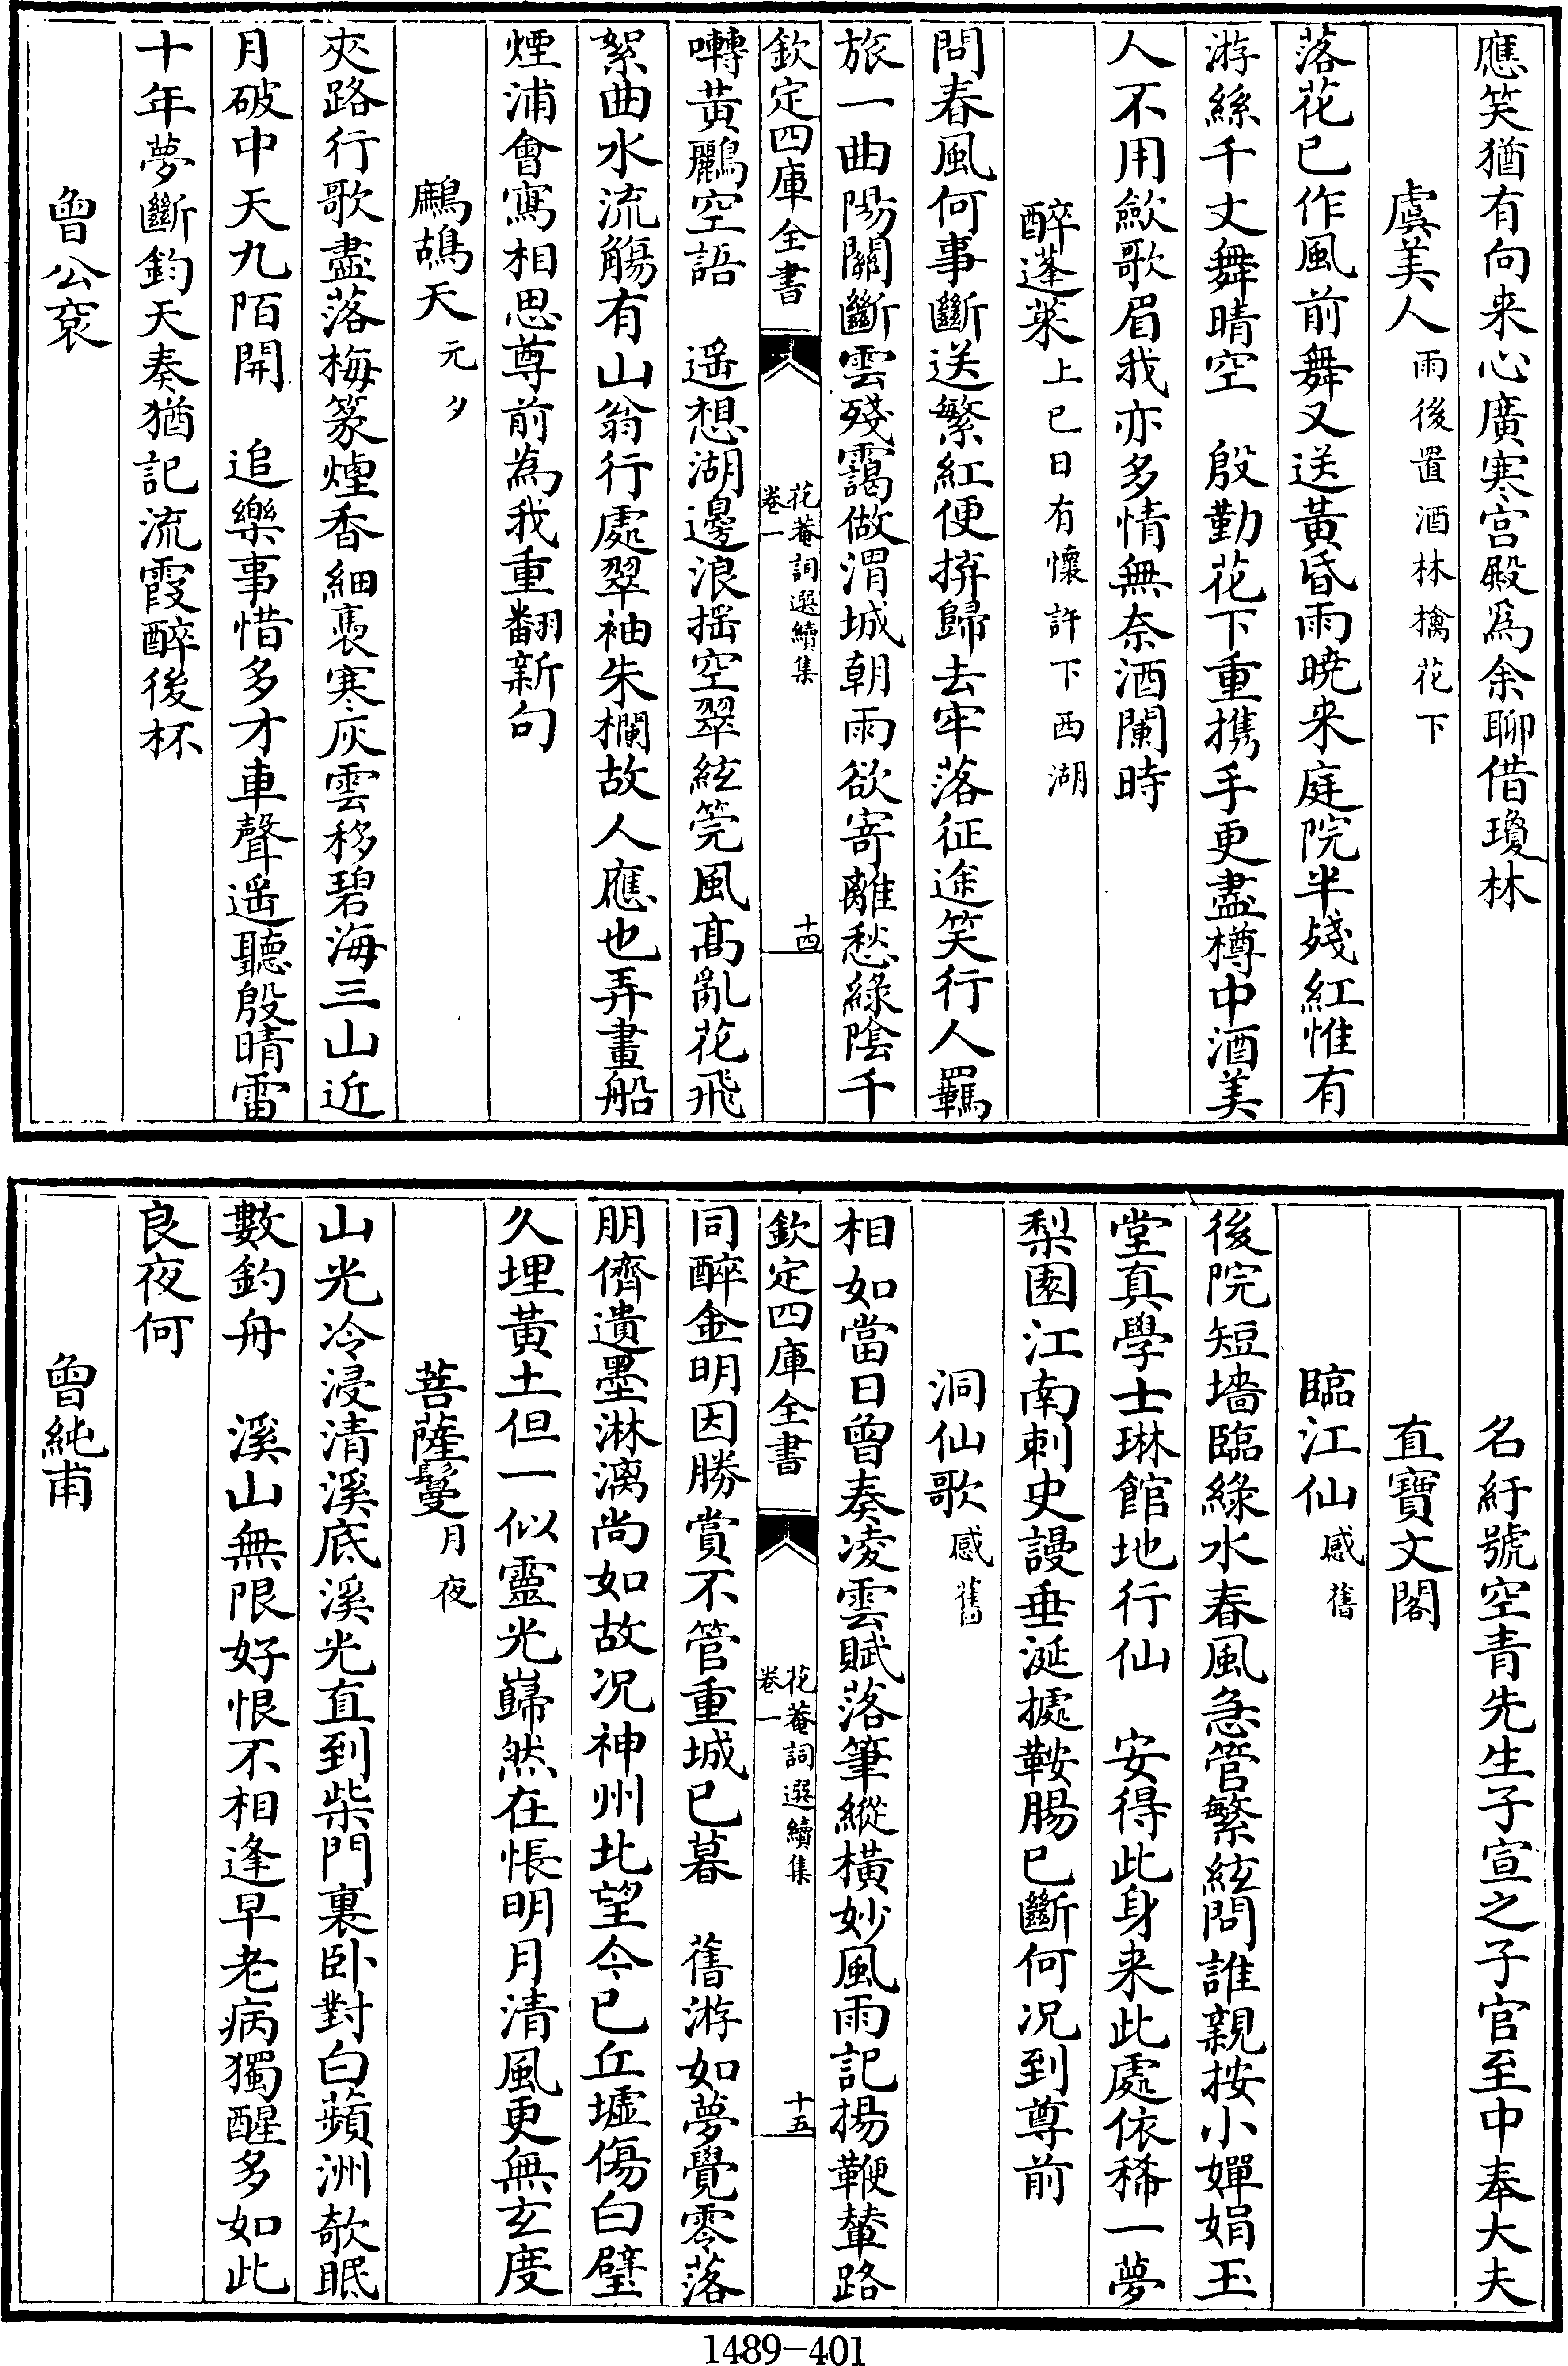 應笑猶有向来心廣寒宫殿爲余聊借瓊林
虞美人雨後置酒林檎花下
落花已作風前舞又送黃昏雨曉来庭院半殘紅惟有
游絲千丈舞晴空　殷勤花下重携手更盡樽中酒美
人不用歛歌眉我亦多情無奈酒闌時
醉蓬萊上巳日有懷許下西湖
問春風何事斷送繁紅便拚歸去牢落征途笑行人羈
旅一曲陽關斷雲殘靄做渭城朝雨欲寄離愁綠陰千
欽定四庫全書　花菴詞選續集卷一　十四
囀黃鸝空語　遥想湖邊浪揺空翠絃筦風髙亂花飛
絮曲水流觴有山翁行處翠袖朱欄故人應也弄畫船
煙浦會寫相思尊前為我重翻新句
鷓鴣天元夕
夾路行歌盡落梅篆煙香細裊寒灰雲移碧海三山近
月破中天九陌開　追樂事惜多才車聲遥聽殷晴雷
十年夢斷鈞天奏猶記流霞醉後杯
曾公衮
名紆號空青先生子宣之子官至中奉大夫
直寶文閣
臨江仙感舊
後院短墻臨綠水春風急管繁絃問誰親按小嬋娟玉
堂真學士琳館地行仙　安得此身来此處依稀一夢
梨園江南刺史謾垂涎據鞍腸已斷何况到尊前
洞仙歌感舊
相如當日曾奏凌雲賦落筆縱橫妙風雨記揚鞭輦路
欽定四庫全書　花菴詞選續集卷一　十五
同醉金明因勝賞不管重城已暮　舊游如夢覺零落
朋儕遺墨淋漓尚如故况神州北望今已丘墟傷白璧
久埋黃土但一似靈光巋然在悵明月清風更無玄度
菩薩鬘月夜
山光冷浸清溪底溪光直到柴門裏卧對白蘋洲欹眠
數釣舟　溪山無限好恨不相逢早老病獨醒多如此
良夜何
曾純甫
1489-401